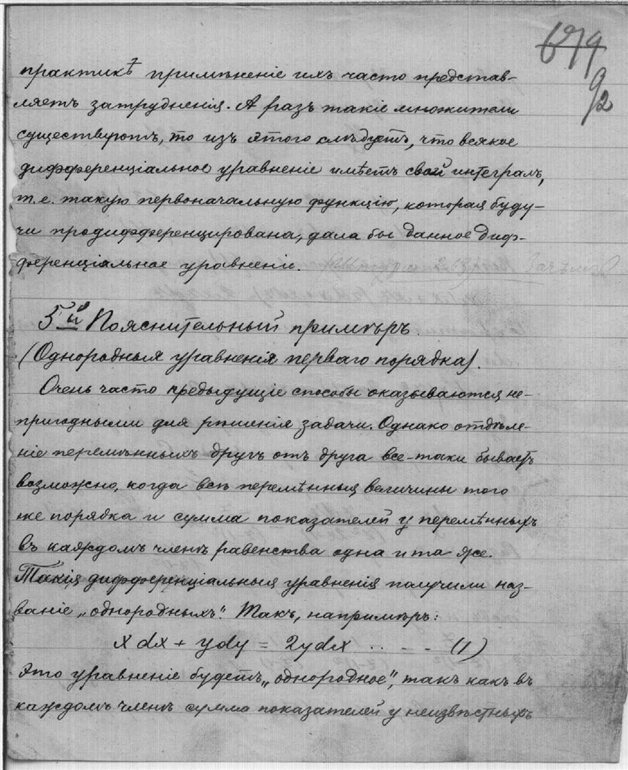 679
92
практикѣ примѣненіе ихъ часто представ-
ляетъ затрудненія. А разъ такіе множители
существуютъ, то изъ этого слѣдуетъ, что всякое
дифференціальное уравненіе имѣетъ свой интегралъ,
т.е. такую первоначальную функцію, которая буду-
чи продифференцирована, дала бы данное диф-
ференціальное уравненіе.
5й Пояснительный примѣръ.
(Однородныя уравненія перваго порядка).
Очень часто предыдущіе способы оказываются не-
пригодными для рѣшенія задачи. Однако отдѣле-
ніе перемѣнныхъ другъ отъ друга все-таки бываетъ
возможно, когда всѣ перемѣнныя величины того
же порядка и сумма показателей у перемѣнныхъ
въ каждомъ членѣ равенства одна и та-же.
Такія дифференціальныя уравненія получили наз-
ваніе „однородныхъ“. Такъ, напримѣръ:
x dx + y dy = 2y dx ..... (1)
Это уравненіе будетъ „однородное“, такъ какъ въ
каждомъ членѣ сумма показателей у неизвѣстныхъ